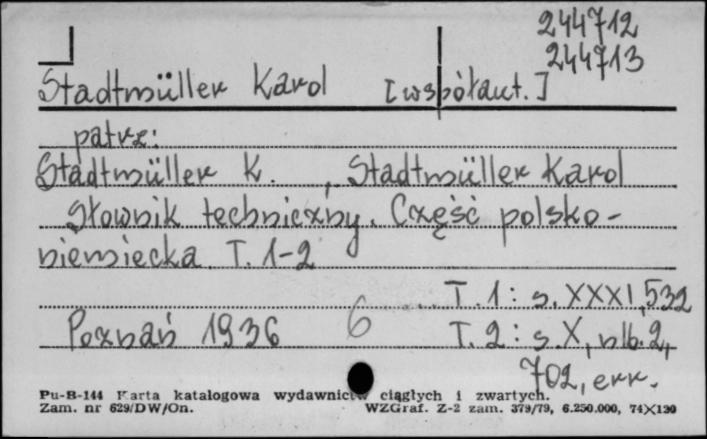 244712
244713
Stadtmüller Karol [współaut.]
patrz:
Stadtmüller K., Stadtmüller Karol
Słownik techniczny. Część polsko-
niemiecka T. 1-2
T. 1: s. XXXI, 532
Poznań 1936 6 T. 2: s. X, nlb. 2,
702, err.
Pu-B-144 Karta katalogowa wydawnictw ciągłych i zwartych.
Zam. nr 629/DW/On. WZGraf. Z-2 zam. 379/79, 6.250.000, 74X120